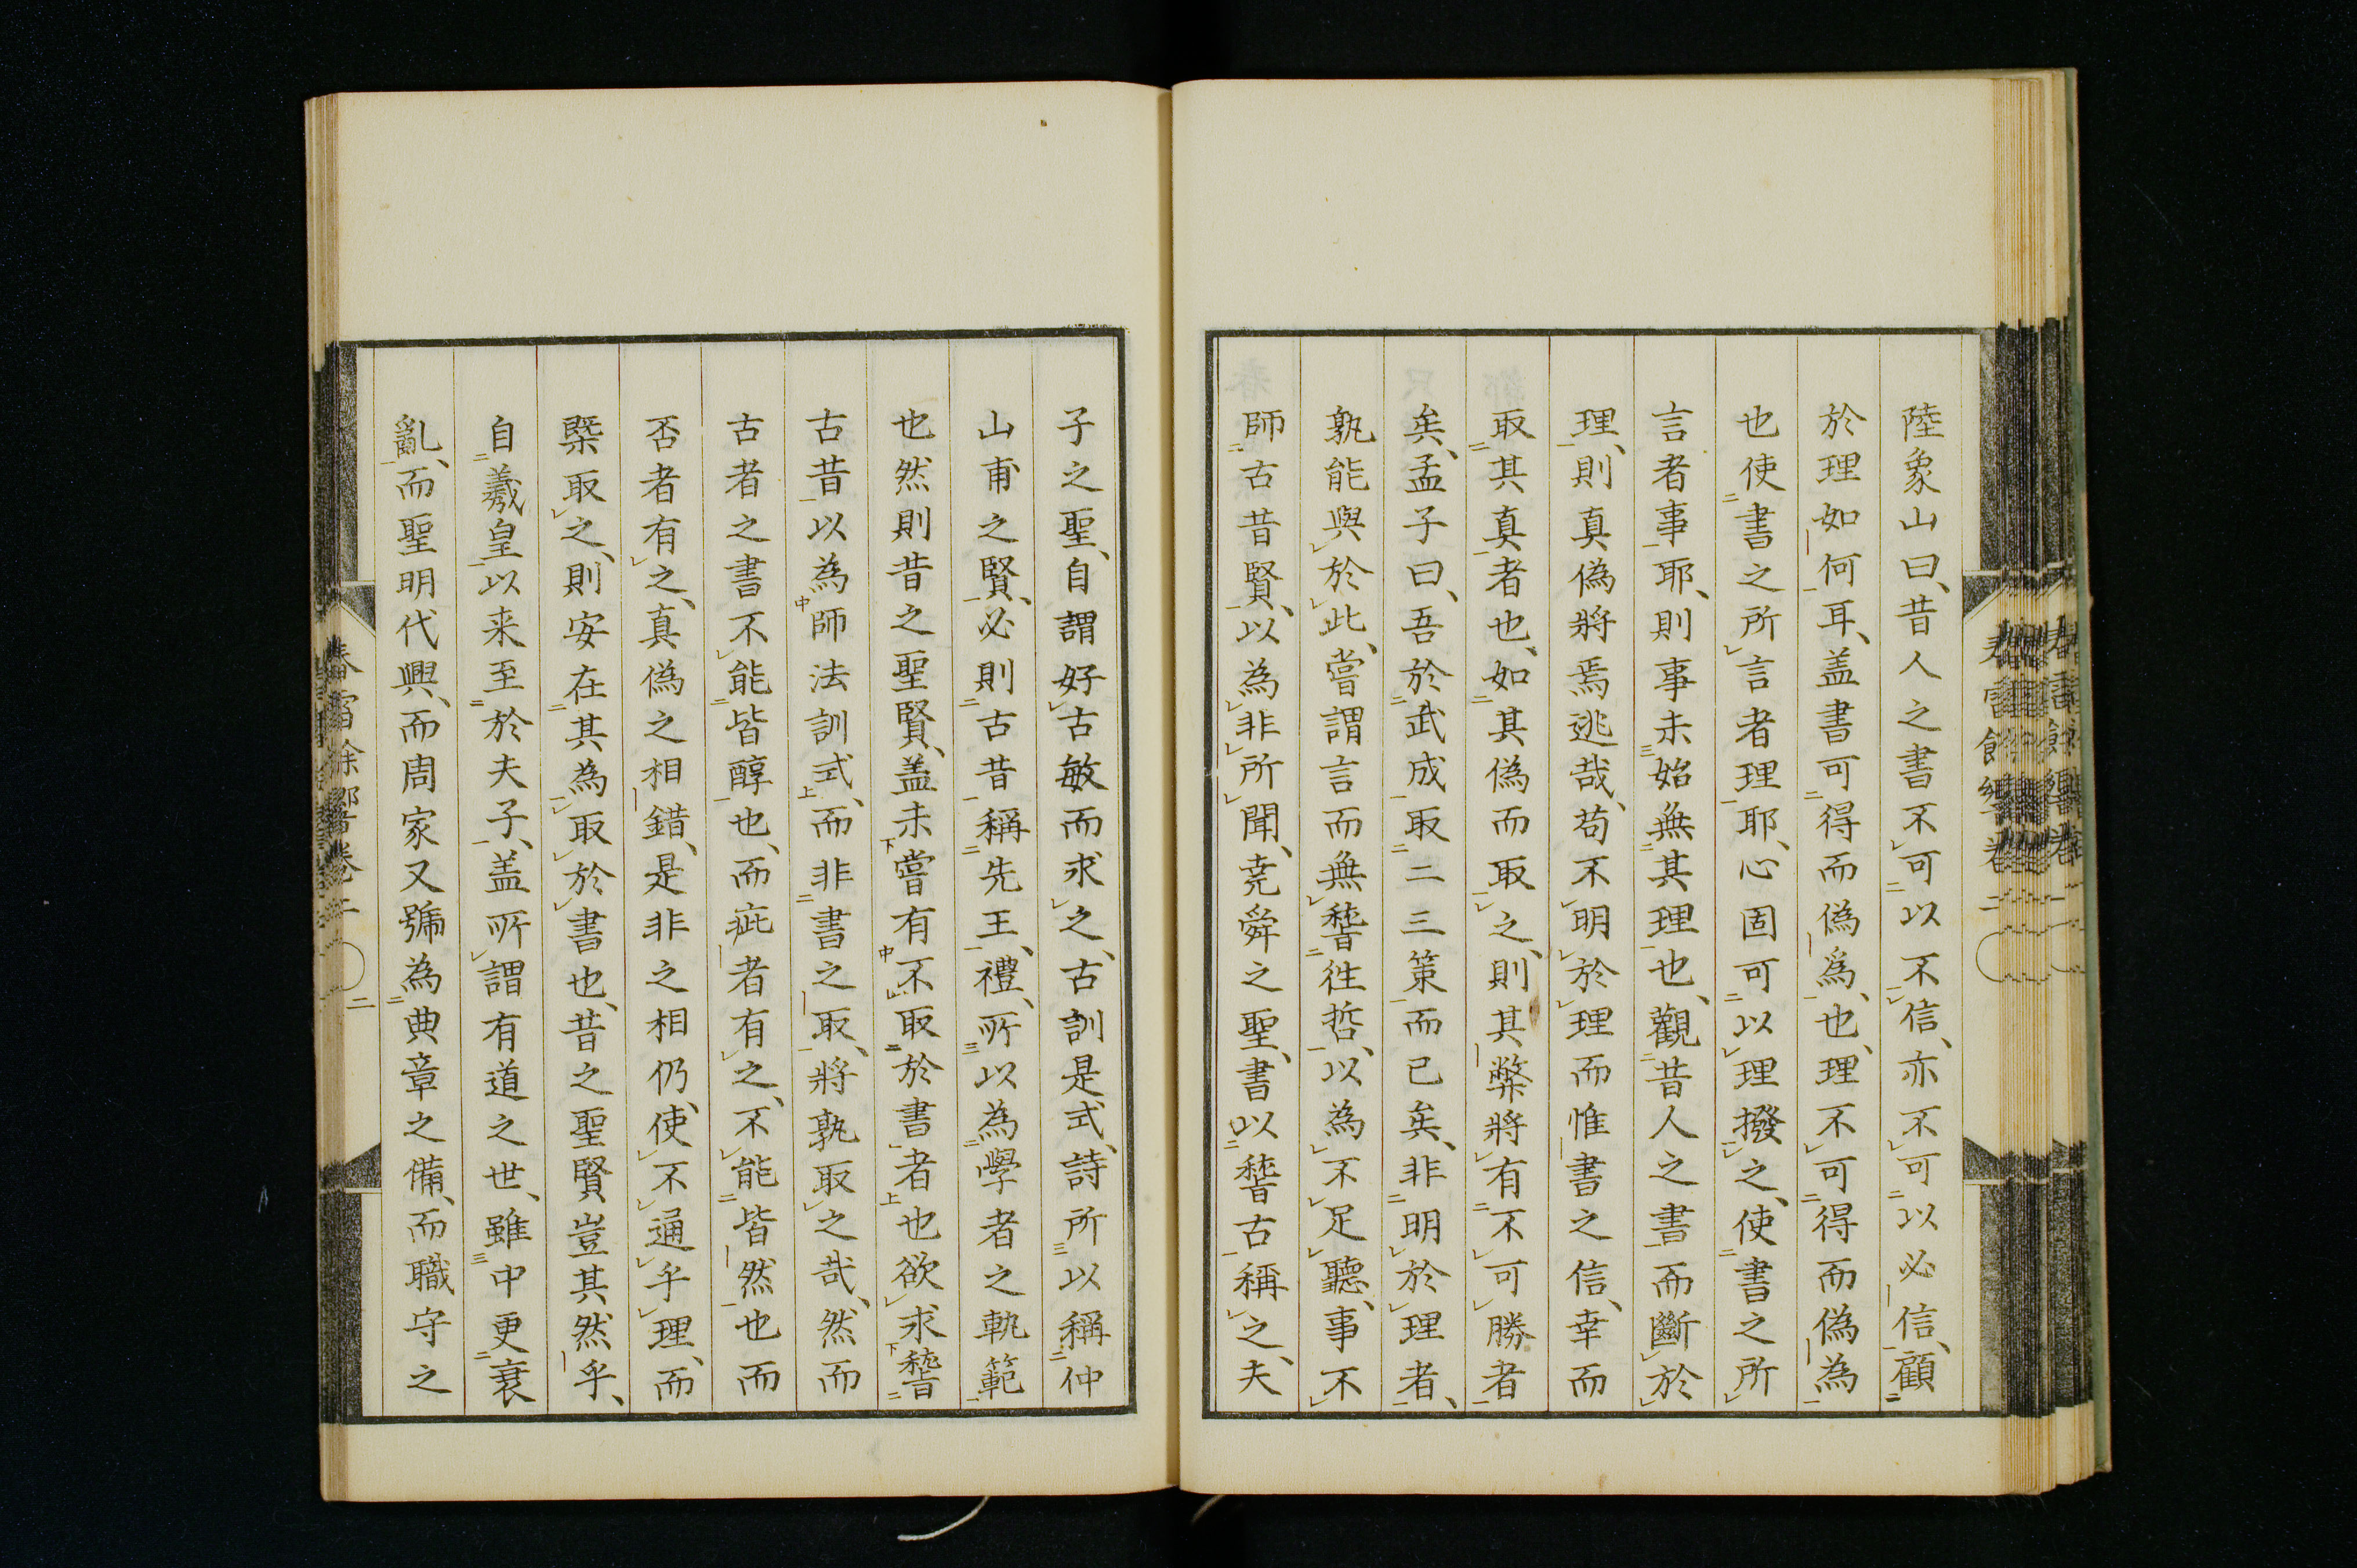 陸象山曰、昔人之書不可以不信、亦不可以必信、顧
於理如何耳、盖書可得而偽爲也、理不可得而偽為
也使書之所言者理耶、心固可以理撥之、使書之所
言者事耶、則事未始無其理也、觀昔人之書而斷於
理、則真偽將焉逃哉、苟不明於理而惟書之信、幸而
取其真者也、如其偽而取之、則其弊將有不可勝者
矣、孟子曰、吾於武成取二三策而已矣、非明於理者、
孰能與於此、嘗謂言而無稽往哲、以為不足聽、事不
師古昔賢、以為非所聞、尭舜之聖、書以稽古稱之、夫
子之聖、自謂好古敏而求之、古訓是式、詩所以稱仲
山甫之賢、必則古昔稱先王、禮、所以為學者之軌範
也然則昔之聖賢、盖未嘗有不取於書者也欲求稽
古昔以為師法訓式、而非書之取、將孰取之哉、然而
古者之書不能皆醇也、而疵者有之、不能皆然也而
否者有之、真偽之相錯、是非之相仍、使不通乎理、而
槩取之、則安在其為取於書也、昔之聖賢豈其然乎、
自羲皇以来至於夫子、盖所謂有道之世、雖中更衰
亂、而聖明代興、而周家又號為典章之備、而職守之